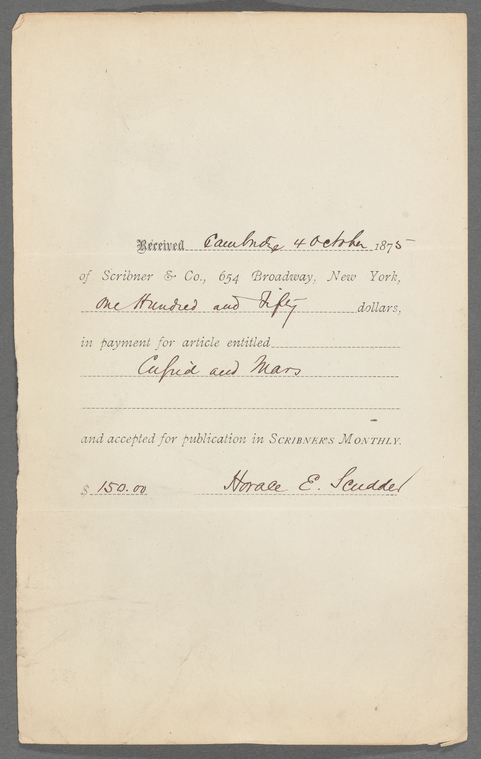 Received Cambridge 4 October 1875
of Scribner & Co., 654 Broadway, New York,
One Hundred and Fifty dollars,
in payment for article entitled
Cupid and Mars
and accepted for publication in SCRIBNER'S MONTHLY.
$ 150.00 Horace E. Scudder